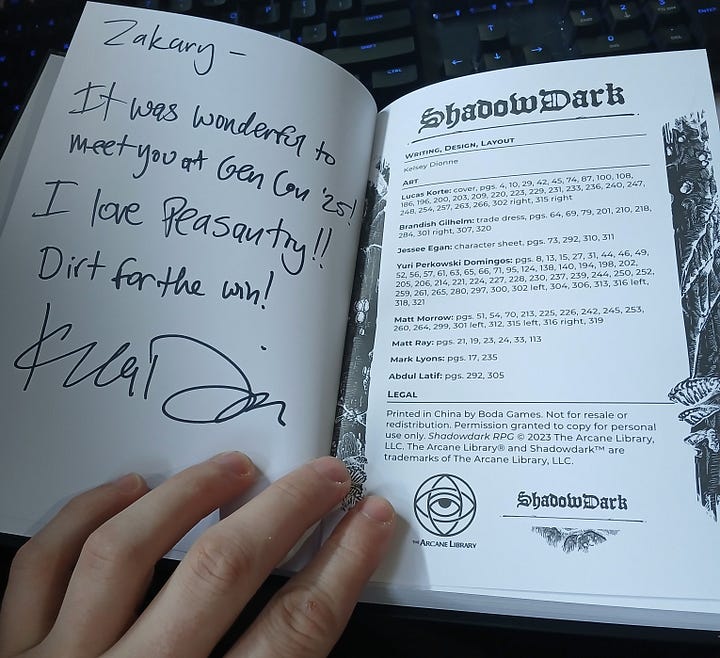 Zakary –
It was wonderful to
meet you at Gen Con '25!
I love Peasantry!!
Dirt for the win!
ShadowDark
Writing, Design, Layout
Kelsey Dionne
Art
Lucas Korte: cover, pgs. 4, 10, 29, 42, 45, 74, 87, 100, 108,
186, 196, 200, 203, 209, 220, 223, 229, 231, 233, 236, 240, 247,
248, 254, 257, 263, 266, 302 right, 315 right
Brandish Gilhelm: trade dress, pgs. 64, 69, 79, 201, 210, 218,
284, 301 right, 307, 320
Jessee Egan: character sheet, pgs. 73, 292, 310, 311
Yuri Perkowski Domingos: pgs. 8, 13, 15, 27, 31, 44, 46, 49,
52, 56, 57, 61, 63, 65, 66, 71, 95, 124, 138, 140, 194, 198, 202,
205, 206, 214, 221, 224, 227, 228, 230, 237, 239, 244, 250, 252,
259, 261, 265, 280, 297, 300, 302 left, 304, 306, 313, 316 left,
318, 321
Matt Morrow: pgs. 51, 54, 70, 213, 225, 226, 242, 245, 253,
260, 264, 299, 301 left, 312, 315 left, 316 right, 319
Matt Ray: pgs. 21, 19, 23, 24, 33, 113
Mark Lyons: pgs. 17, 235
Abdul Latif: pgs. 292, 305
Legal
Printed in China by Boda Games. Not for resale or
redistribution. Permission granted to copy for personal
use only. Shadowdark RPG © 2023 The Arcane Library,
LLC. The Arcane Library® and Shadowdark™ are
trademarks of The Arcane Library, LLC.
The Arcane Library
ShadowDark